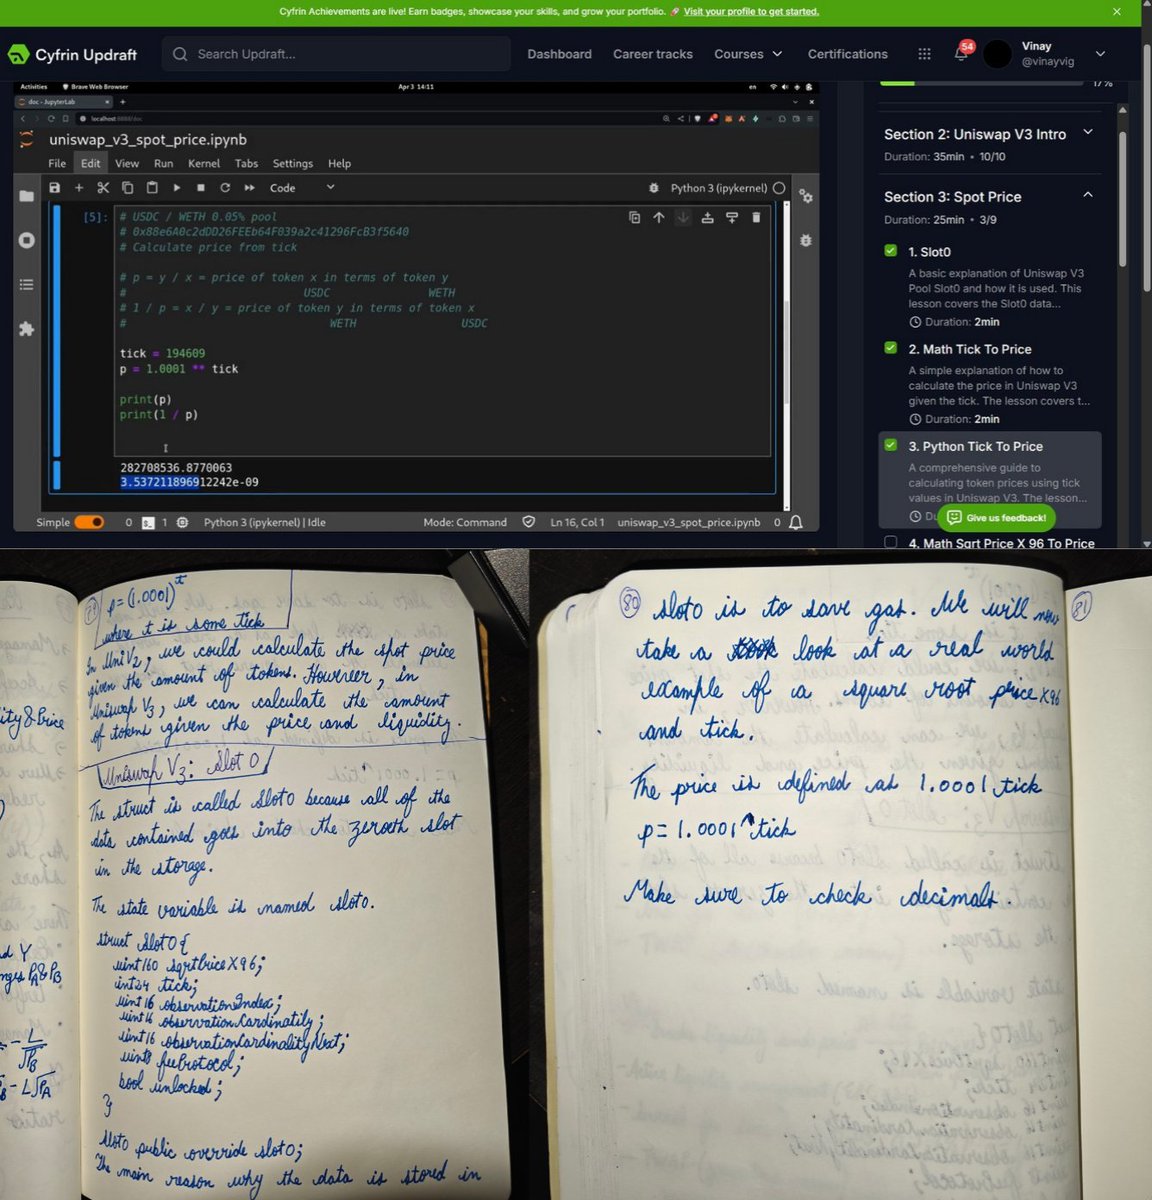 Cyfrin Achievements are live! Earn badges, showcase your skills, and grow your portfolio. 🚀 Visit your profile to get started.
Cyfrin Updraft
Search Updraft...
Dashboard
Career tracks
Courses
Certifications
54
Vinay
@vinayvig
Activities
Brave Web Browser
Apr 3 14:11
en
doc - JupyterLab
localhost:8888/doc
uniswap_v3_spot_price.ipynb
File Edit View Run Kernel Tabs Settings Help
Code
Python 3 (ipykernel)
[5]:
# USDC / WETH 0.05% pool
# 0x88e6A0c2dDD26FEEb64F039a2c41296FcB3f5640
# Calculate price from tick
# p = y / x = price of token x in terms of token y
# USDC WETH
# 1 / p = x / y = price of token y in terms of token x
# WETH USDC
tick = 194609
p = 1.0001 ** tick
print(p)
print(1 / p)
282708536.8770063
3.537211896912242e-09
Simple
0
1
Python 3 (ipykernel) | Idle
Mode: Command
Ln 16, Col 1
uniswap_v3_spot_price.ipynb
0
17%
Section 2: Uniswap V3 Intro
Duration: 35min • 10/10
Section 3: Spot Price
Duration: 25min • 3/9
1. Slot0
A basic explanation of Uniswap V3
Pool Slot0 and how it is used. This
lesson covers the Slot0 data...
Duration: 2min
2. Math Tick To Price
A simple explanation of how to
calculate the price in Uniswap V3
given the tick. The lesson covers t...
Duration: 2min
3. Python Tick To Price
A comprehensive guide to
calculating token prices using tick
values in Uniswap V3. The lesson...
Give us feedback!
4. Math Sqrt Price X 96 To Price
p = (1.0001)^t
where t is some tick
In Uni V2, we could calculate the spot price
given the amount of tokens. However, in
Uniswap V3, we can calculate the amount
of tokens given the price and liquidity.
Uniswap V3: Slot 0
The struct is called Slot0 because all of the
data contained goes into the zeroeth slot
in the storage.
The state variable is named slot0.
struct Slot0 {
uint160 sqrtPriceX96;
int24 tick;
uint16 observationIndex;
uint16 observationCardinatily;
uint16 observationCardinalityNext;
uint8 feeProtocol;
bool unlocked;
}
Slot0 public override slot0;
The main reason why the data is stored in
80
slot0 is to save gas. We will now
take a look at a real world
example of a square root price X96
and tick.
The price is defined as 1.0001^tick
p = 1.0001^tick
Make sure to check decimals.
81